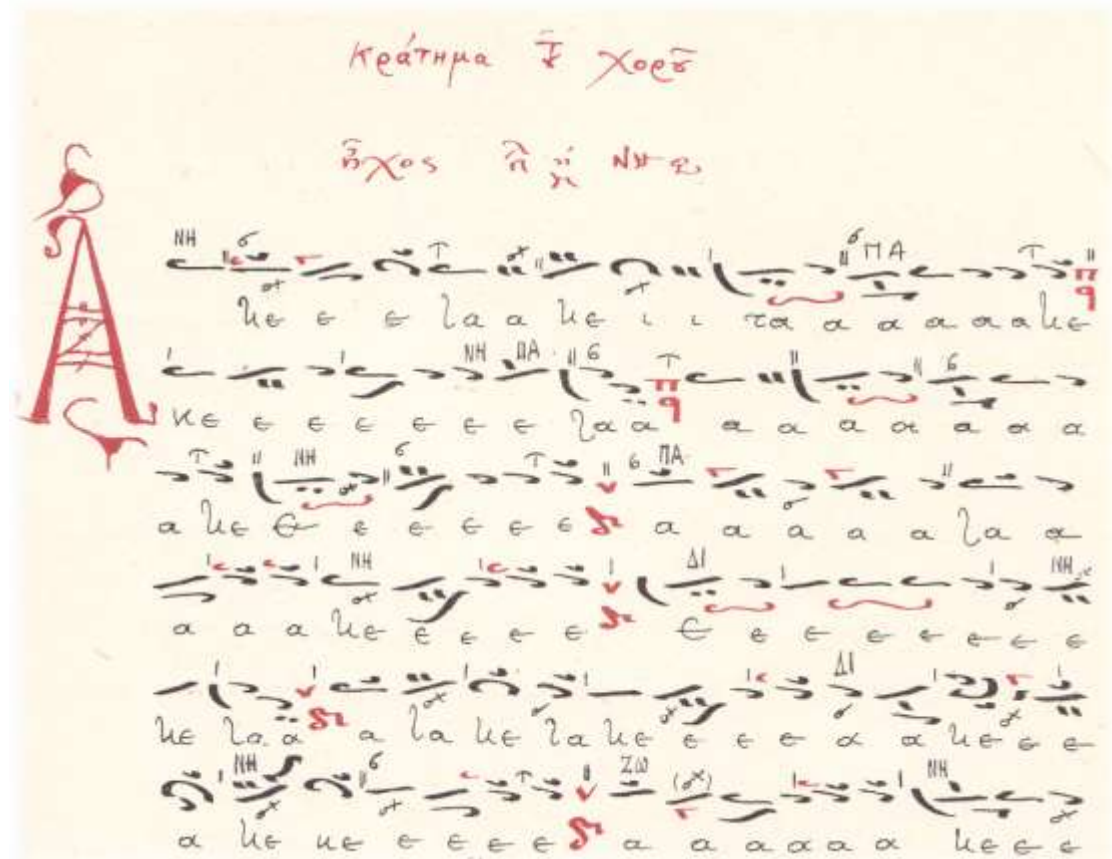 κράτημα χορȣ̃
ἦχος πλ δ΄ ΝΗ
Α
ΝΗ ΠΑ
νε ε ε λα α νε ι ι τα α α α α α νε
ΝΗ ΠΑ
νε ε ε ε ε ε ε λα α α α α α α α α
ΝΗ ΠΑ
α νε ε ε ε ε ε ε α α α α α λα α
ΝΗ ΔΙ ΝΗ
α α α νε ε ε ε ε ε ε ε ε ε ε ε
ΔΙ
νε λα α α λα νε λα νε ε ε ε α α νε ε ε
ΝΗ ΖΩ ΝΗ
α νε νε ε ε ε ε α α α α α νε ε ε